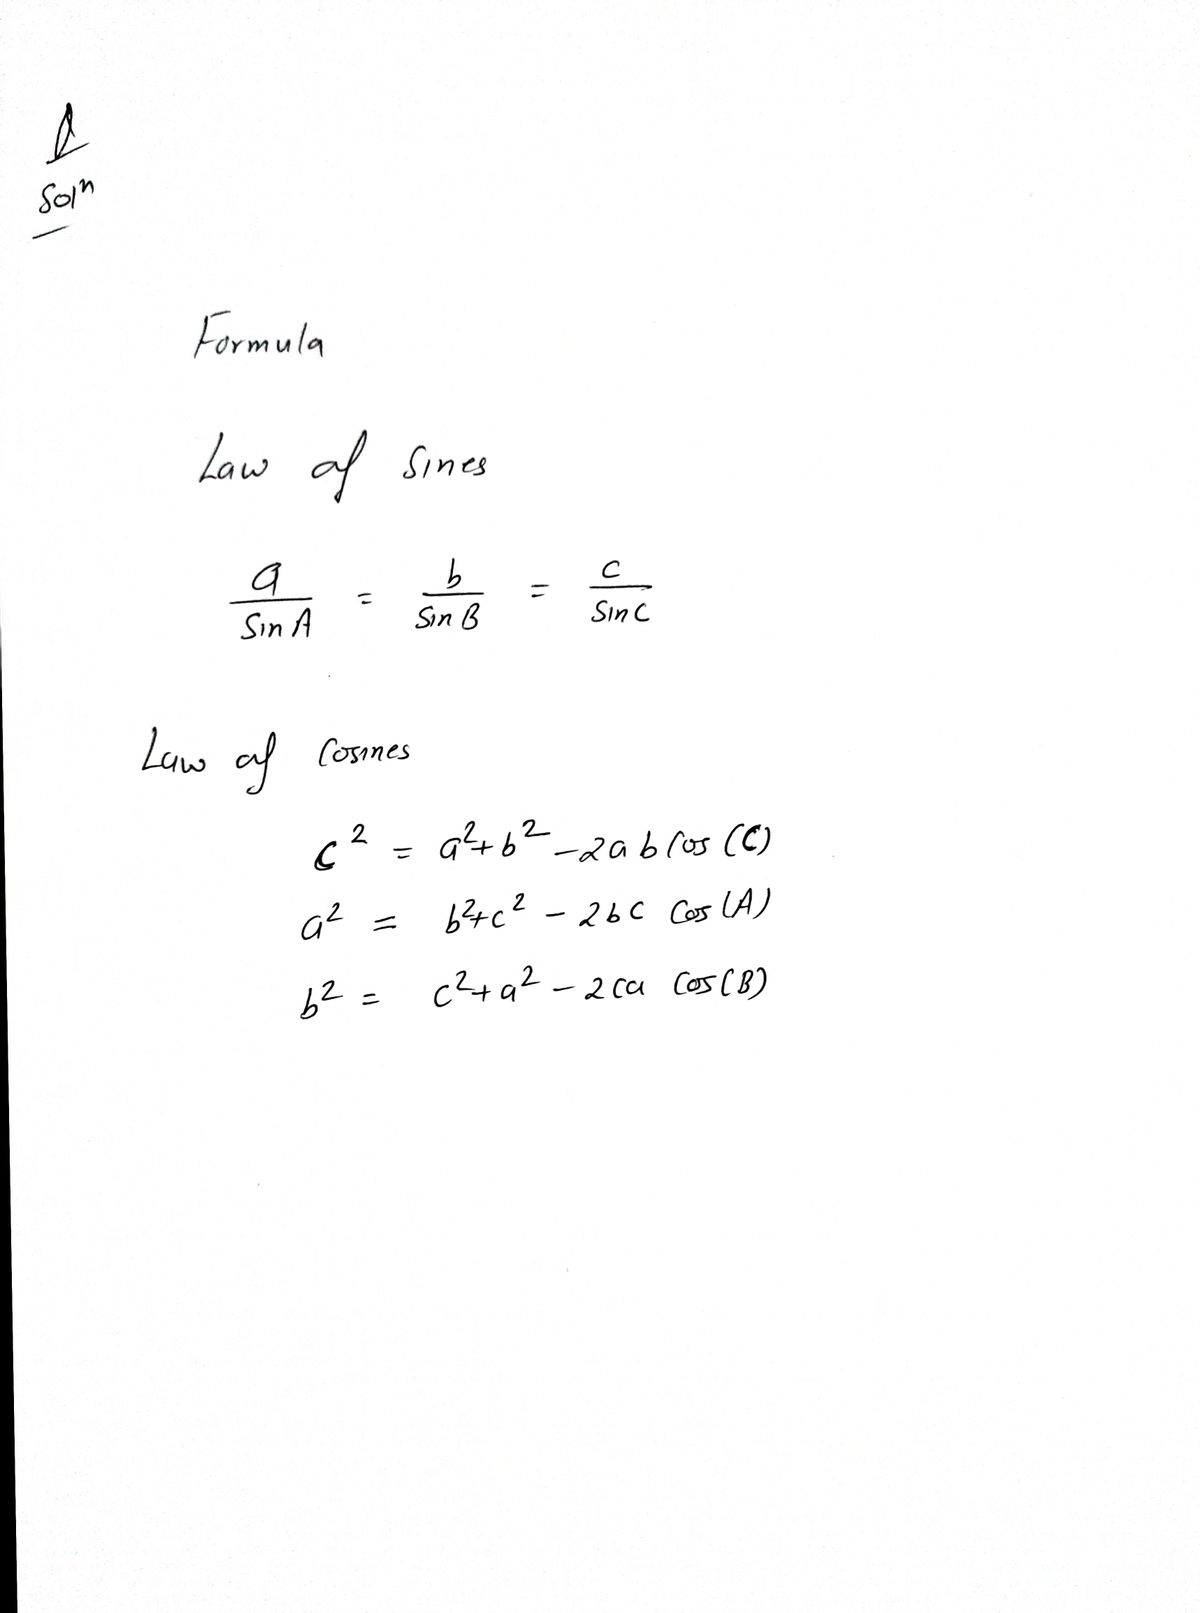 Solⁿ
Formula
Law of Sines
a/Sin A = b/Sin B = c/Sin C
Law of Cosines
c² = a²+b² -2ab Cos (C)
a² = b²+c² - 2bc Cos (A)
b² = c²+a² - 2ca Cos (B)